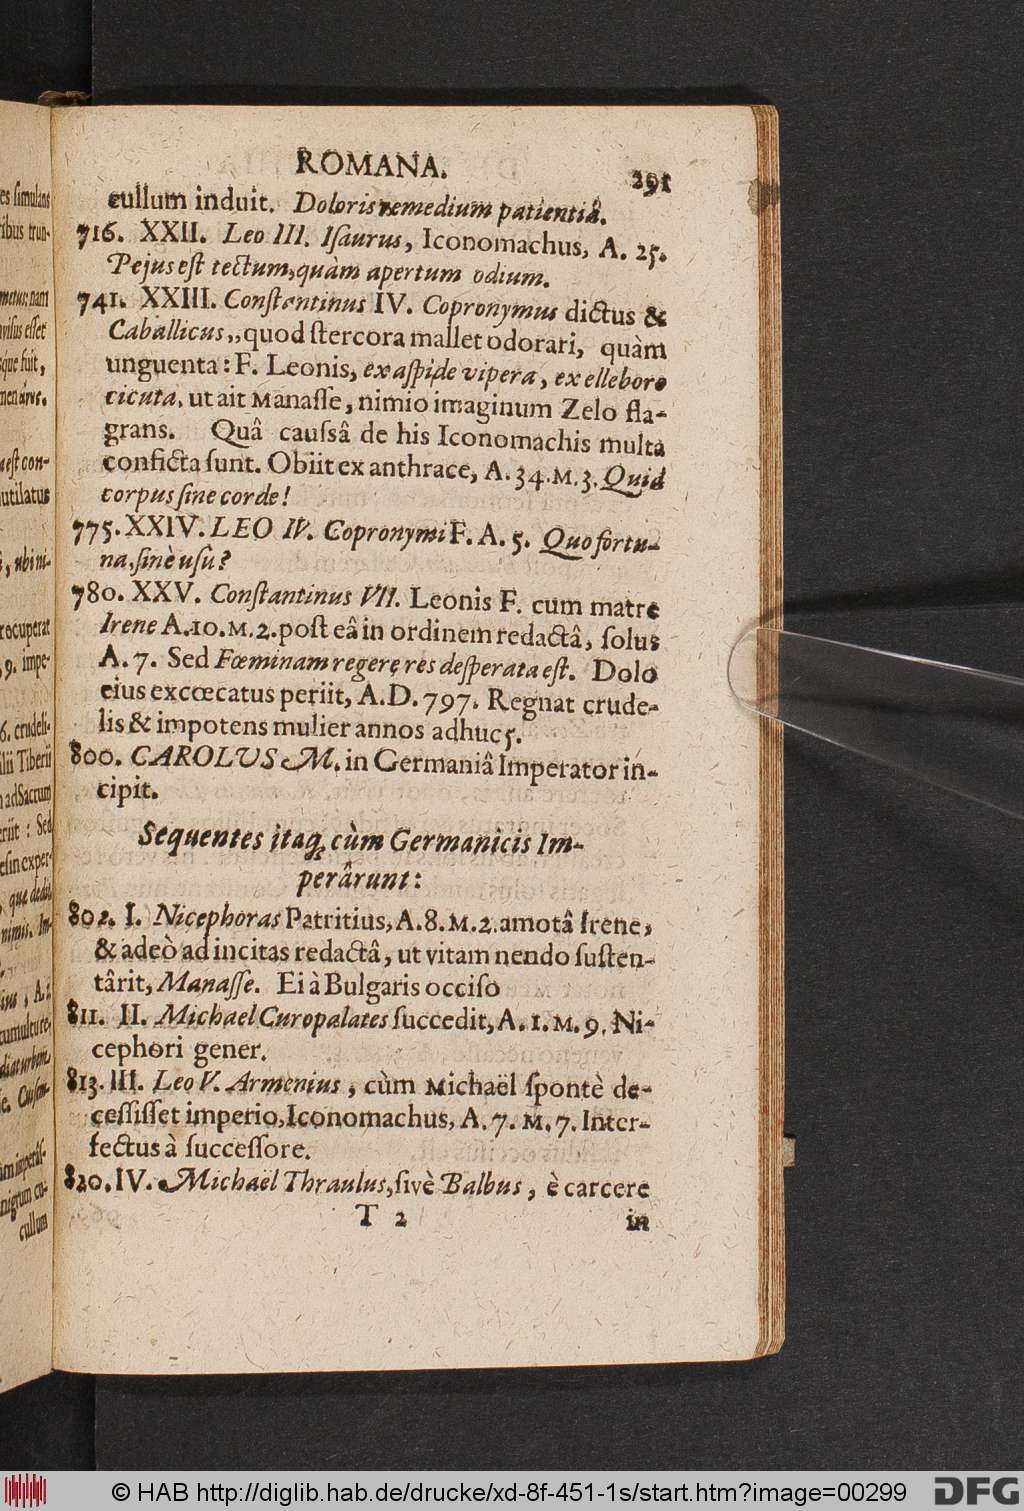 ROMANA. 291
cullum induit. Doloris remedium patientiâ.
716. XXII. Leo III. Iſaurus, Iconomachus, A. 25.
Pejus eſt tectum, quàm apertum odium.
741. XXIII. Conſtantinus IV. Copronymus dictus &
Caballicus,, quod ſtercora mallet odorari, quàm
unguenta: F. Leonis, ex aſpide vipera, ex elleboro
cicuta, ut ait Manaſſe, nimio imaginum Zelo fla-
grans. Quâ cauſsâ de his Iconomachis multa
conficta ſunt. Obiit ex anthrace, A. 34. M. 3. Quid
corpus ſine corde!
775. XXIV. LEO IV. Copronymi F. A. 5. Quo fortu-
na, ſinè uſu?
780. XXV. Conſtantinus VII. Leonis F. cum matre
Irene A. 10. M. 2. poſt eâ in ordinem redactâ, ſolus
A. 7. Sed Fœminam regere res deſperata eſt. Dolo
eius excœcatus periit, A.D. 797. Regnat crude-
lis & impotens mulier annos adhuc 5.
800. CAROLUS M. in Germaniâ Imperator in-
cipit.
Sequentes itaq; cùm Germanicis Im-
perârunt:
802. I. Nicephoras Patritius, A. 8. M. 2. amotâ Irene,
& adeò ad incitas redactâ, ut vitam nendo ſuſten-
târit, Manaſſe. Ei à Bulgaris occiſo
811. II. Michael Curopalates ſuccedit, A. 1. M. 9. Ni-
cephori gener.
813. III. Leo V. Armenius, cùm Michaël ſpontè de-
ceſſiſſet imperio, Iconomachus, A. 7. M. 7. Inter-
fectus à ſucceſſore.
820. IV. Michaël Thraulus, ſivè Balbus, è carcere
T 2 in
es ſimulans
ribus trun-
metus: nam
viſus eſſet
sque fuit,
a eſt con-
mutilatus
, ubi ni-
recuperat
, 9. impe-
6. crudeli-
ilii Tiberii
ad Sacrum
eriit: Sed
, A. 2
cullum
© HAB http://diglib.hab.de/drucke/xd-8f-451-1s/start.htm?image=00299
DFG